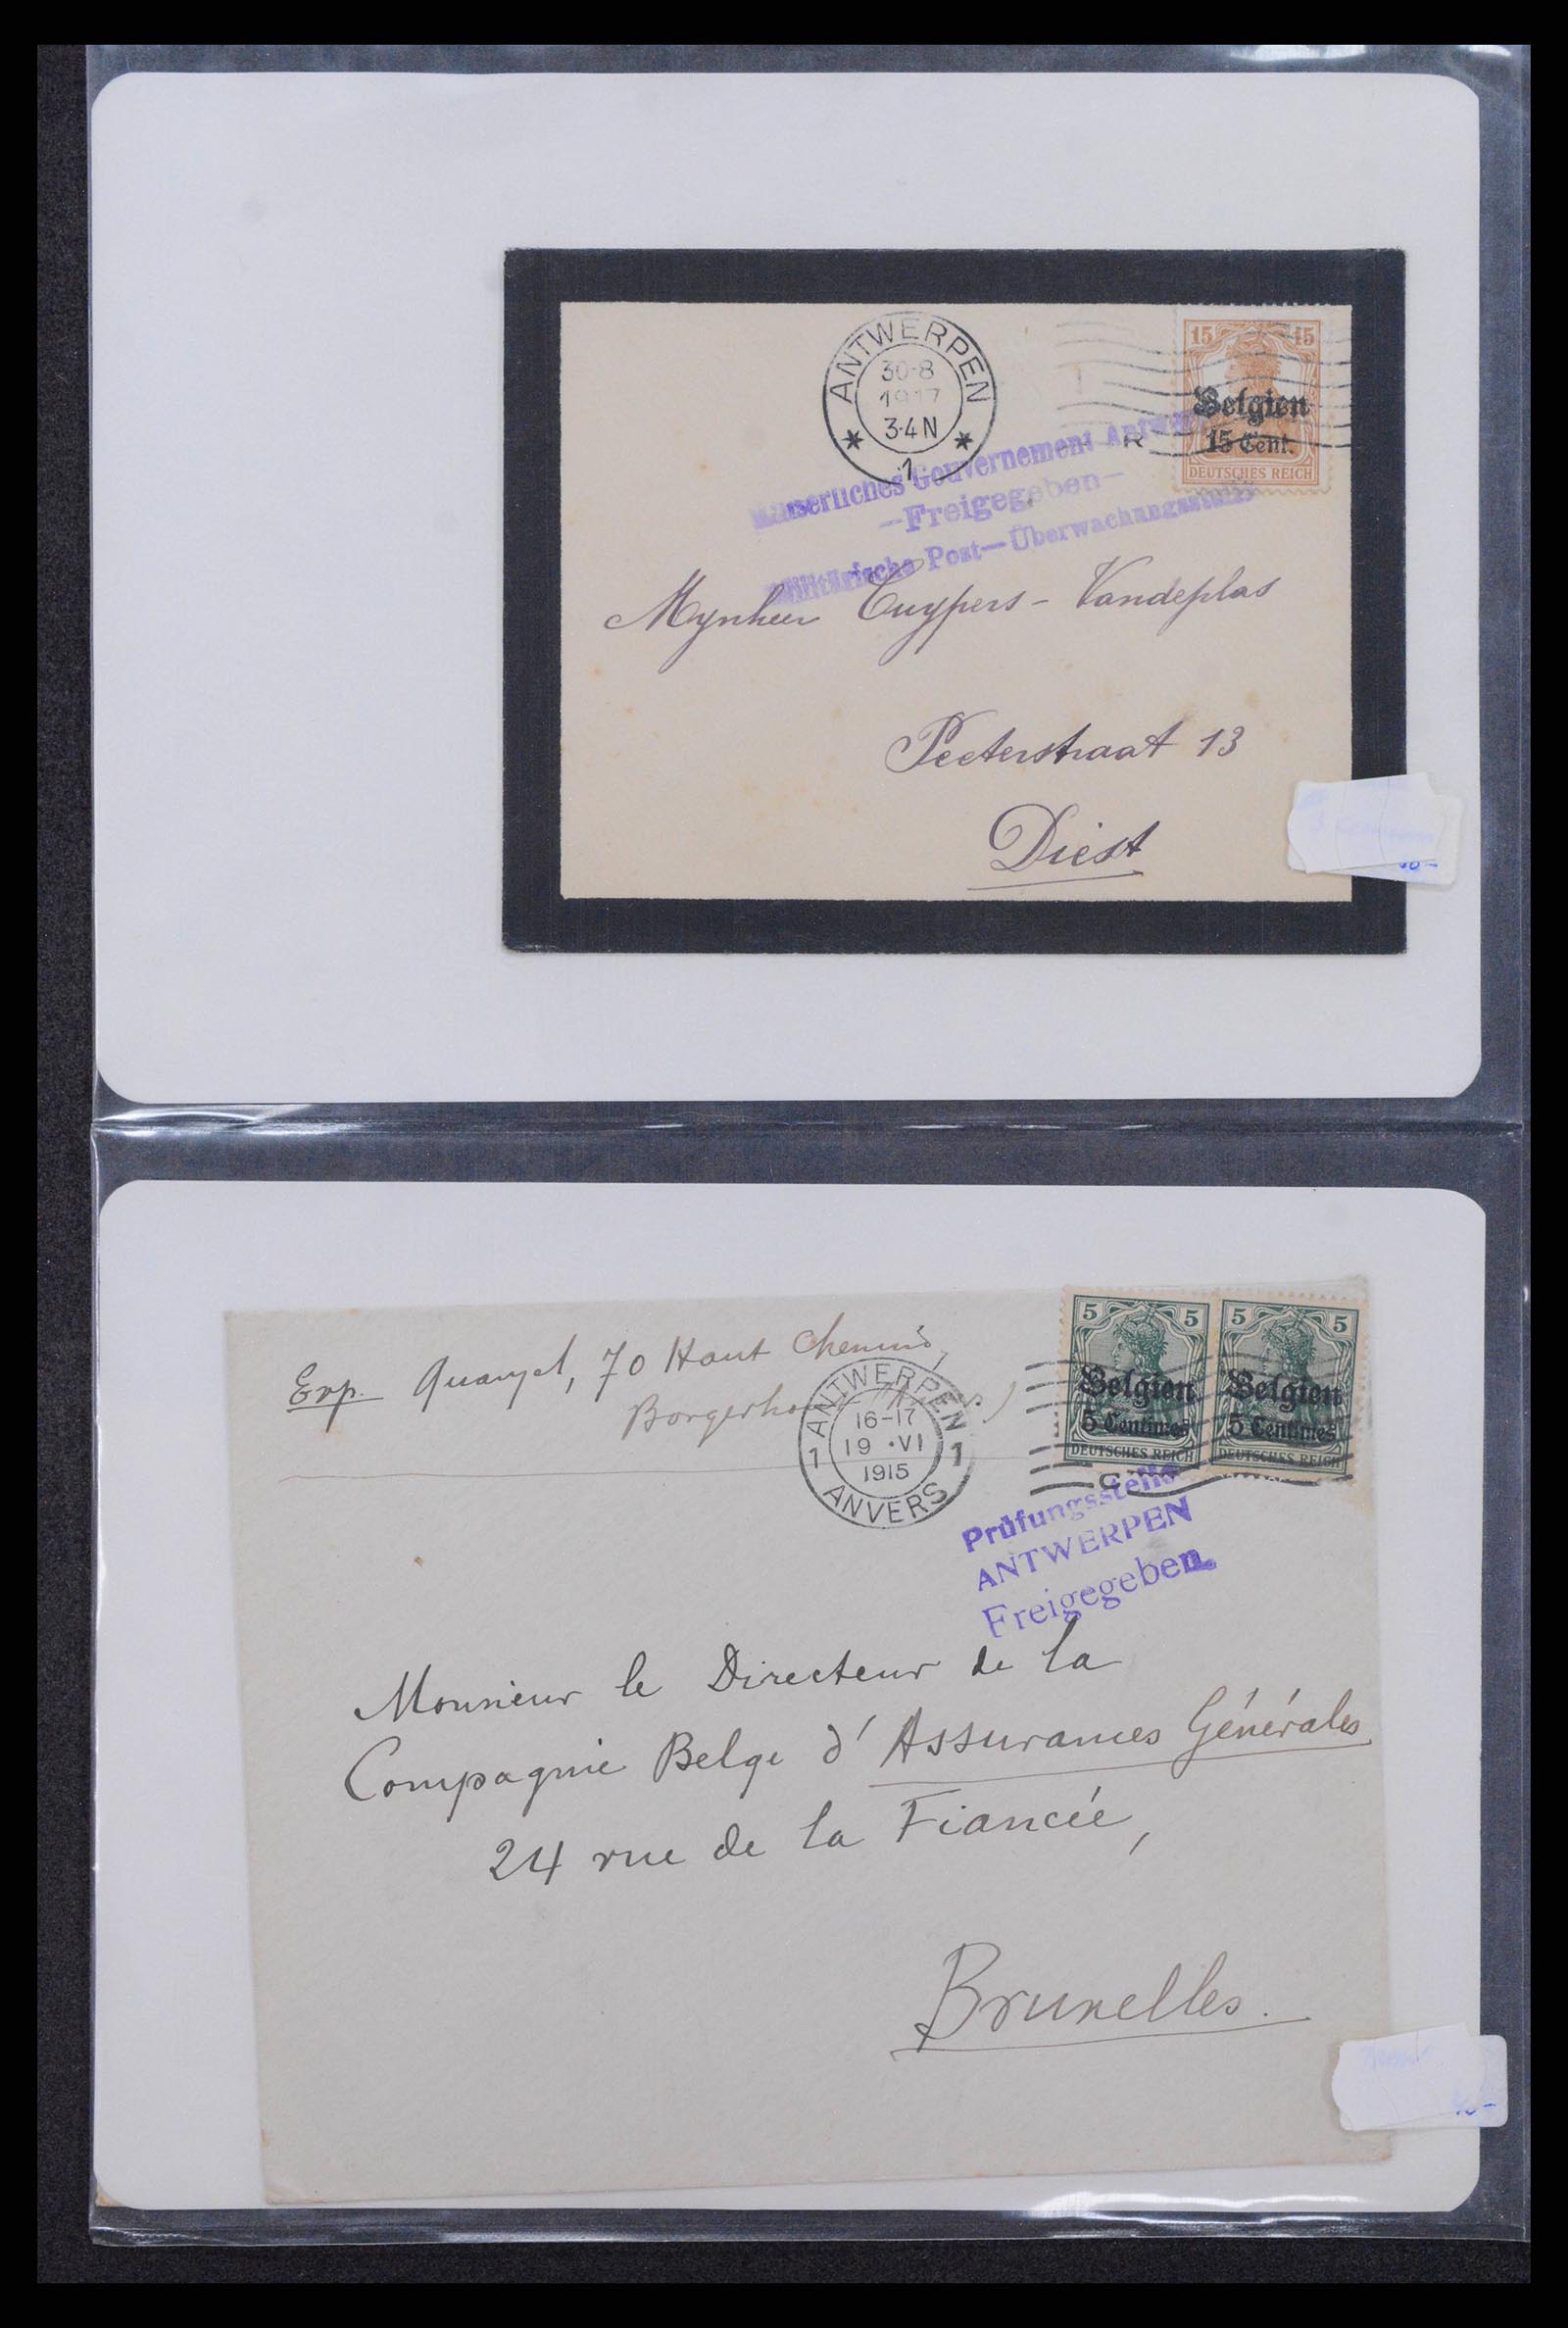 ANTWERPEN
30-8
1917
3-4N
1
15 15
Belgien
15 Cent.
DEUTSCHES REICH
Kaiserliches Gouvernement
—Freigegeben—
Militärische Post—Überwachungsstelle
Mynheer Cuypers - Vandeplas
Peeterstraat 13
Diest
Exp. 70 Haut Chemin,
ANTWERPEN
16-17
1 19 •VI 1
1915
ANVERS
5 5
Belgien
5 Centimes
DEUTSCHES REICH
5 5
Belgien
5 Centimes
DEUTSCHES REICH
Prüfungsstelle
ANTWERPEN
Freigegeben.
Monsieur le Directeur de la
Compagnie Belge d'Assurances Générales
24 rue de la Fiancée,
Bruxelles.